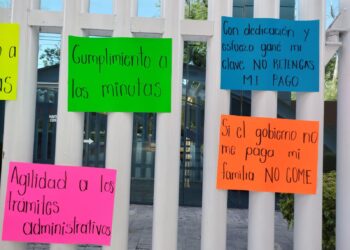 Cumplimiento a
las minutas
Con dedicación y
esfuerzo gané mi
clave NO RETENGAS
MI PAGO
Si el gobierno no
me paga mi
familia NO COME
Agilidad a los
tramites
administrativas